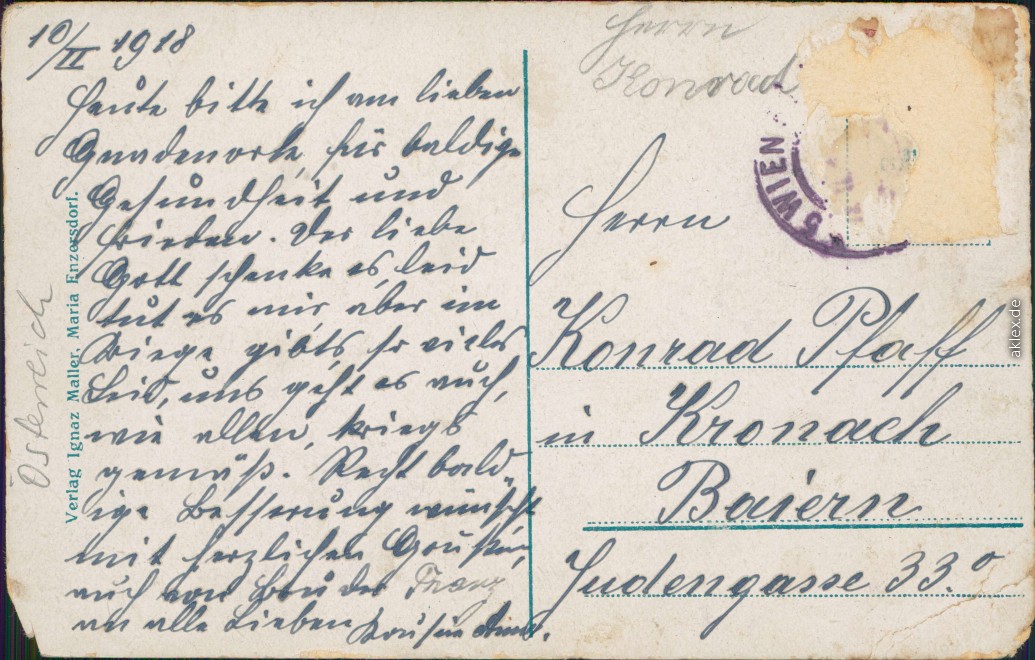 10/II 1918
Heute bitte ich am lieben
Gnadenorte, für baldige
Gesundheit und
Frieden. Der liebe
Gott schenke es, leid
tut es mir aber im
Kriege gibts so vieles
Leid, uns geht es auch,
wie allen, kriegs
gemäß. Recht bald„
ige Besserung wünscht
mit herzlichen Grüßen,
auch von Bruder Franz
an alle Lieben Kousine Anna.
Österreich
Verlag Ignaz Maller, Maria Enzersdorf.
Herrn
Konrad
5 WIEN
Herrn
Konrad Pfaff
in Kronach
Baiern
Judengasse 33.°
aklex.de